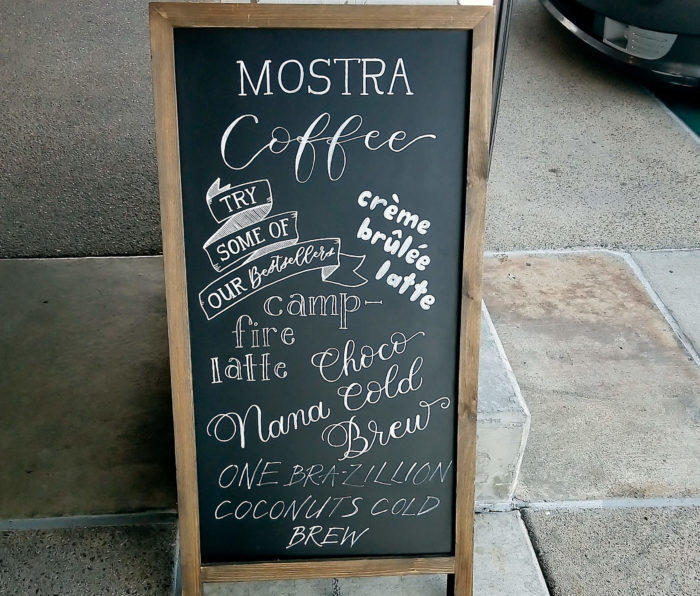 MOSTRA
Coffee
TRY
SOME OF
OUR Bestsellers
crème
brûlée
latte
camp-
fire
latte
Choco
Nana Cold
Brew
ONE BRA-ZILLION
COCONUTS COLD
BREW